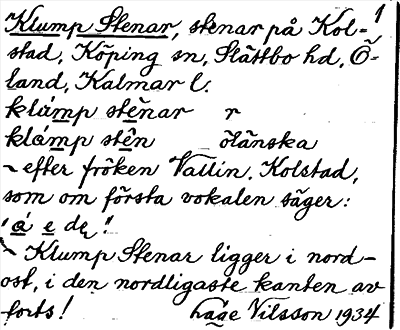 Klump Stenar, stenar på Kol- 1
stad, Köping sn, Slättbo hd, Ö-
land, Kalmar l.
klámp stenar r
klámp stên ölänska
~ efter fröken Vallin. Kolstad,
som om första vokalen säger:
"á e de!"
~ Klump Stenar ligger i nord-
ost, i den nordligaste kanten av
forts! Lage Nilsson 1934